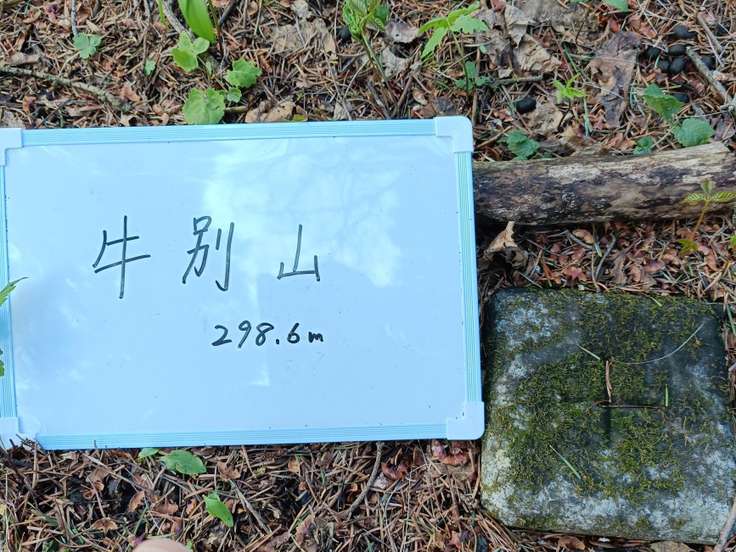 牛別山
298.6m